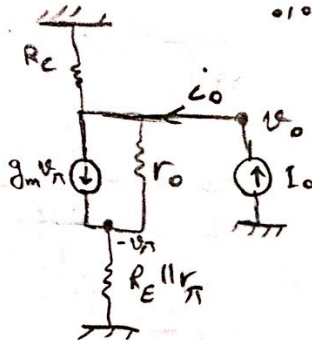 010
R_C
i_o
v_o
g_m v_π
r_o
I_o
-v_π
R_E || r_π